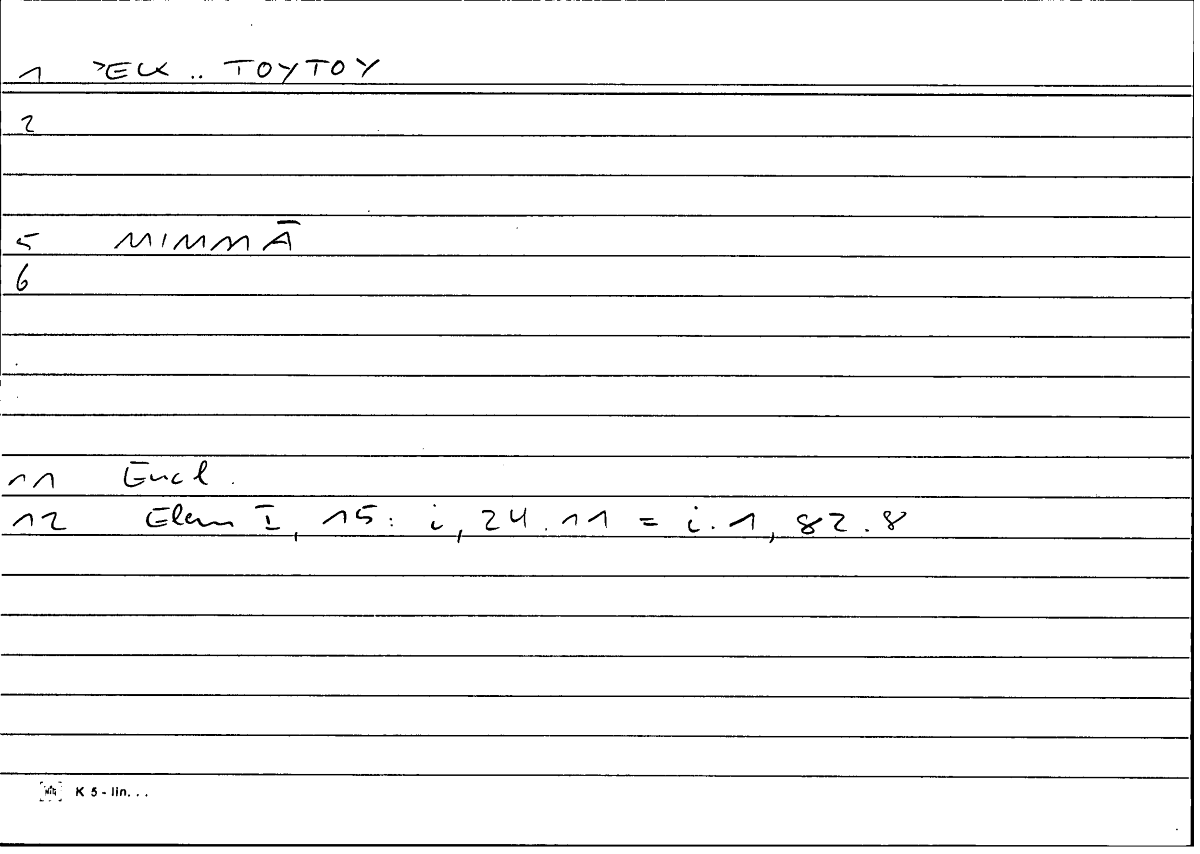 1 ʾEK .. TOYTOY
2
5 MIMMĀ
6
11 Eucl.
12 Elem I, 15: i, 24.11 = i.1, 82.8
K 5 - lin...